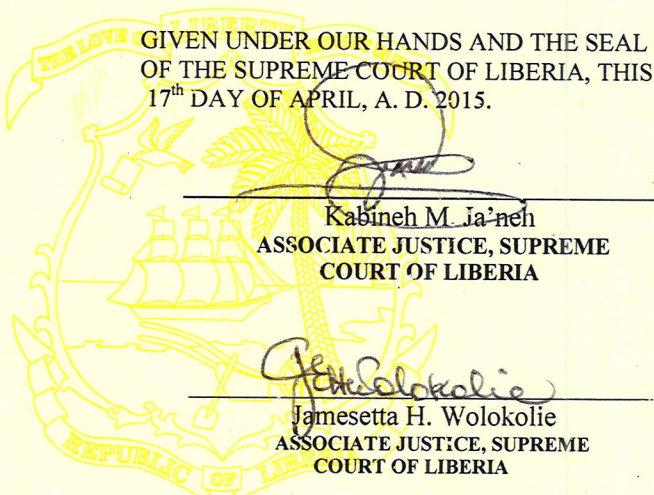 THE LOVE OF LIBERTY
GIVEN UNDER OUR HANDS AND THE SEAL
OF THE SUPREME COURT OF LIBERIA, THIS
17th DAY OF APRIL, A. D. 2015.
Kabineh M. Ja'neh
ASSOCIATE JUSTICE, SUPREME
COURT OF LIBERIA
Jamesetta H. Wolokolie
ASSOCIATE JUSTICE, SUPREME
COURT OF LIBERIA
REPUBLIC OF LIBERIA